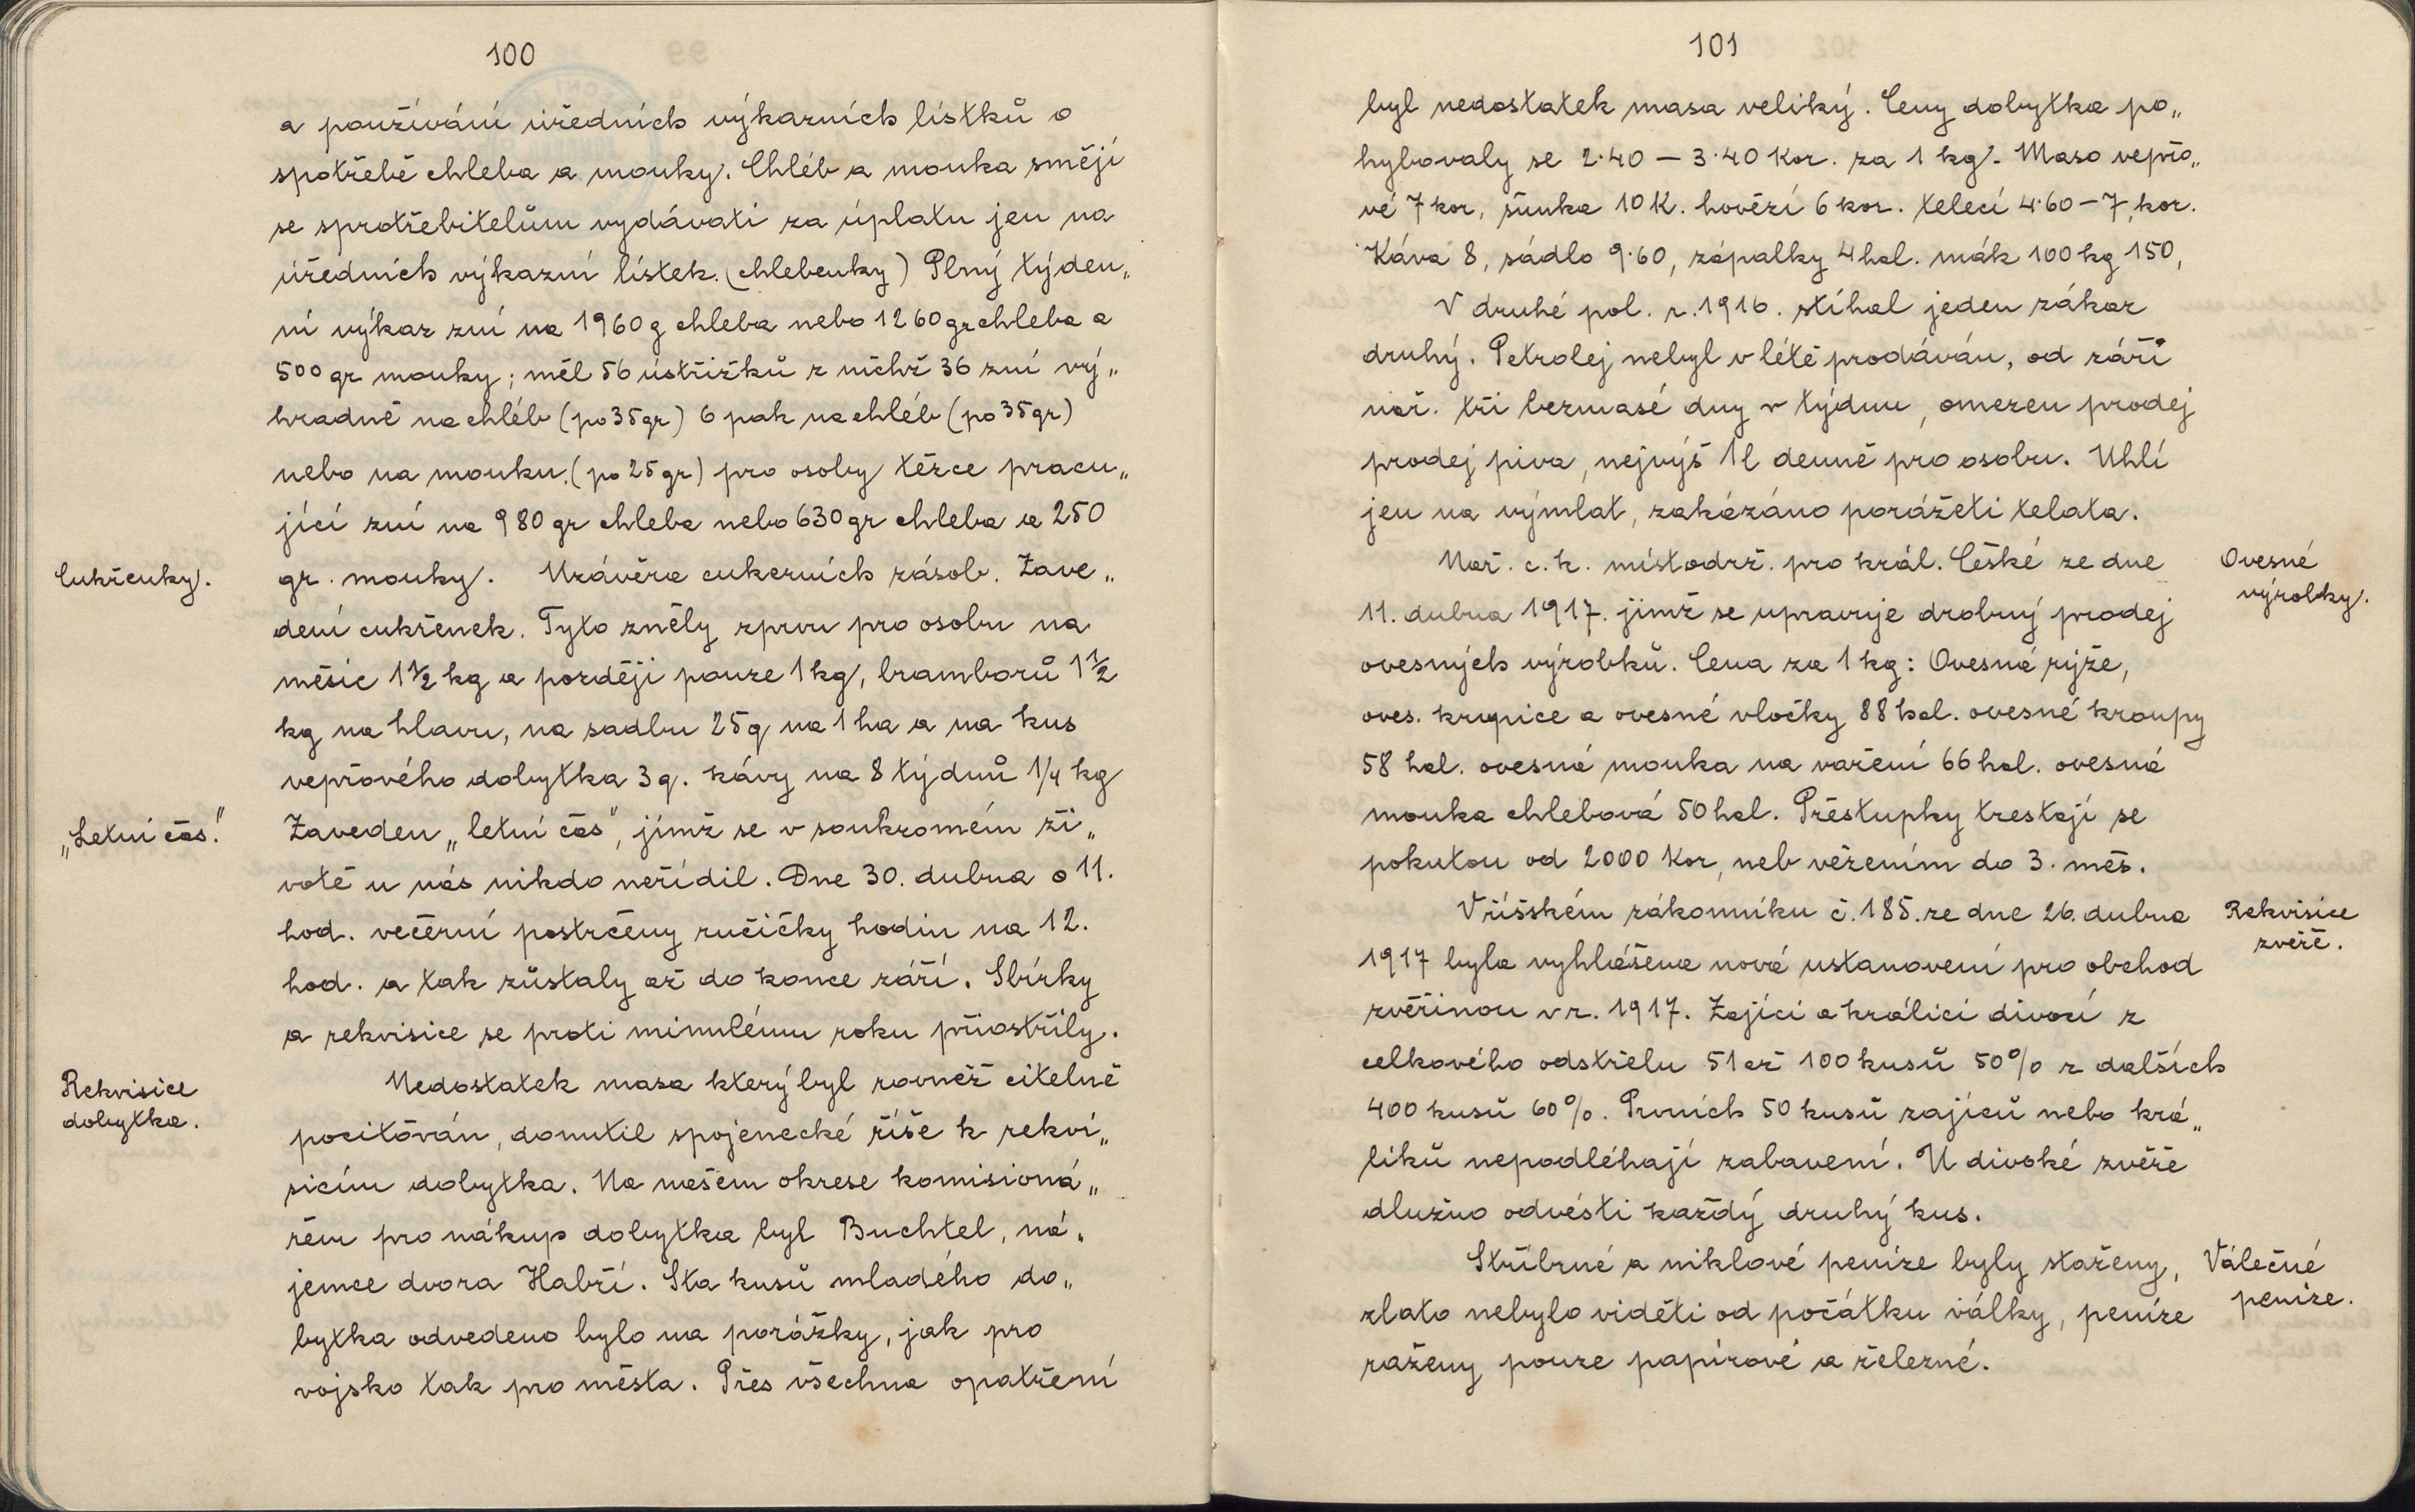 100
a používání úředních výkazních lístků o
spotřebě chleba a mouky. Chléb a mouka smějí
se spotřebitelům vydávati za úplatu jen na
úředních výkazní lístek. (chlebenky) Plný týden„
ní výkaz zní na 1960 g chleba nebo 1260 gr chleba a
500 gr mouky; měl 56 ústřižků z nichž 36 zní vý„
hradně na chléb (po 35 gr) 6 pak na chléb (po 35 gr)
nebo na mouku. (po 25 gr) pro osoby těžce pracu„
jící zní na 980 gr chleba nebo 630 gr chleba a 250
Cukřenky.
gr. mouky. Uzávěra cukerních zásob. Zave„
dení cukřenek. Tyto zněly zprvu pro osobu na
měsíc 1½ kg a později pouze 1 kg, bramborů 1½
kg na hlavu, na sadbu 25 q na 1 ha a na kus
vepřového dobytka 3 q. kávy na 8 týdnů 1/4 kg
„Letní čas."
Zaveden „letní čas", jímž se v soukromém ži„
votě u nás nikdo neřídil. Dne 30. dubna o 11.
hod. večerní postrčeny ručičky hodin na 12.
hod. a tak zůstaly až do konce září. Sbírky
a rekvisice se proti minulému roku přiostřily.
Rekvisice
dobytka.
Nedostatek masa který byl rovněž citelně
pociťován, donutil spojenecké říše k rekvi„
sicím dobytka. Na našem okrese komisioná„
řem pro nákup dobytka byl Buchtel, ná„
jemce dvora Habří. Sta kusů mladého do„
bytka odvedeno bylo na porážky, jak pro
vojsko tak pro města. Přes všechna opatření
101
byl nedostatek masa veliký. Ceny dobytka po„
hybovaly se 2·40 — 3·40 Kor. za 1 kg. Maso vepřo„
vé 7 kor, šunka 10 K. hovězí 6 kor. telecí 4·60 – 7, kor.
Káva 8, sádlo 9·60, zápalky 4 hal. mák 100 kg 150,
V druhé pol. r. 1916. stíhal jeden zákaz
druhý. Petrolej nebyl v létě prodáván, od září
nař. tři bezmasé dny v týdnu, omezen prodej
prodej piva, nejvýš 1 l denně pro osobu. Uhlí
jen na výmlat, zakázáno porážeti telata.
Nař. c. k. místodrž. pro král. České ze dne
Ovesné
výrobky.
11. dubna 1917. jímž se upravuje drobný prodej
ovesných výrobků. Cena za 1 kg: Ovesná rýže,
oves. krupice a ovesné vločky 88 hal. ovesné kroupy
58 hal. ovesná mouka na vaření 66 hal. ovesná
mouka chlebová 50 hal. Přestupky trestají se
pokutou od 2000 Kor, neb vězením do 3. měs.
V říšském zákonníku č. 185. ze dne 26. dubna
Rekvisice
zvěře.
1917 byla vyhlášena nová ustanovení pro obchod
zvěřinou v r. 1917. Zajíci a králíci divocí z
celkového odstřelu 51 až 100 kusů 50% z dalších
400 kusů 60%. Prvních 50 kusů zajíců nebo krá„
líků nepodléhají zabavení. U divoké zvěře
dlužno odvésti každý druhý kus.
Stříbrné a niklové peníze byly staženy,
Válečné
peníze.
zlato nebylo viděti od počátku války, peníze
raženy pouze papírové a železné.